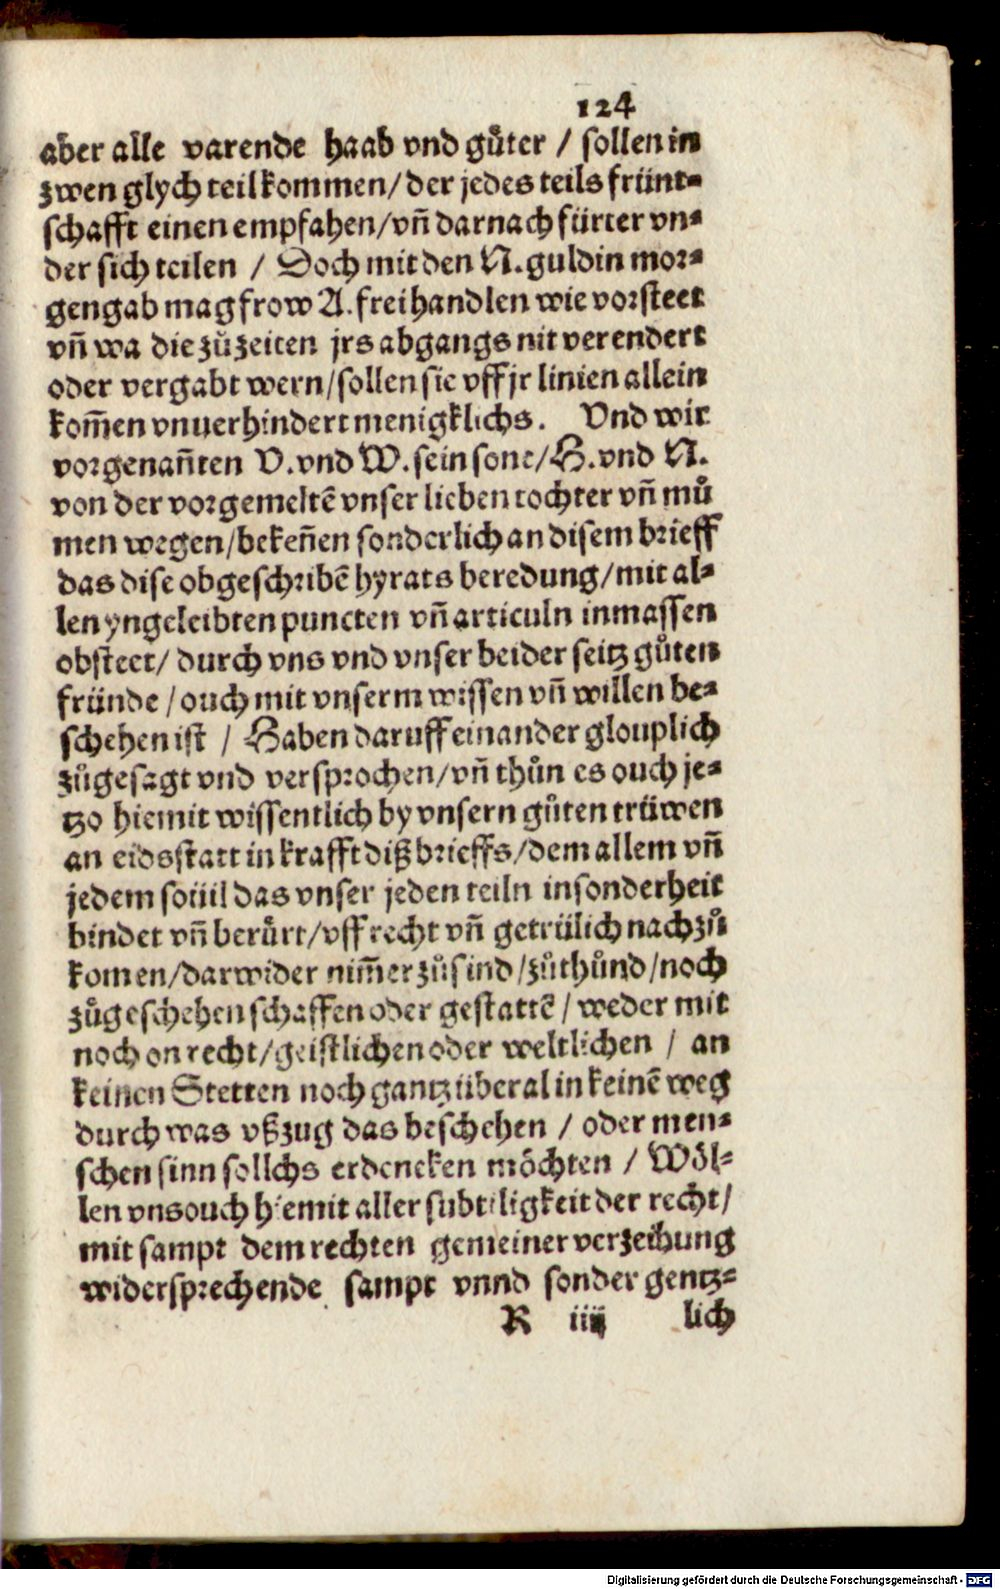 124
aber alle varende haab vnd gůter / sollen in
zwen glych teil kommen/ der jedes teils fründt⸗
schafft einen empfahen/ vn̄ darnach fürter vn⸗
der sich teilen / Doch mit den N. guldin mor⸗
gengab mag frow A. frei handlen wie vorsteet
vn̄ wa die zůzeiten jrs abgangs nit verendert
oder vergabt wern/ sollen sie vff jr linien allein
kom̄en vnuerhindert menigklichs. Vnd wir
vorgenan̄ten V. vnd W. sein sone/ H. vnd N.
von der vorgemeltē vnser lieben tochter vn̄ můͦ
men wegen/ beken̄en sonderlich an disem brieff
das dise obgeschribē hyrats beredung/ mit al⸗
len yngeleibten puncten vn̄ articuln inmassen
obsteet/ durch vns vnd vnser beider seitz gůten
fründe / ouch mit vnserm wissen vn̄ willen be⸗
schehen ist / Haben daruff einander glouplich
zůgesagt vnd versprochen/ vn̄ thůn es ouch je⸗
tzo hiemit wissentlich by vnsern gůten trüwen
an eidsstatt in krafft diß brieffs/ dem allem vn̄
jedem souil das vnser jeden teiln insonderheit
bindet vn̄ berůrt/ vff recht vn̄ getrülich nachzů
komen/ darwider nim̄er zů sind/ zůthůnd/ noch
zůgeschehen schaffen oder gestattē / weder mit
noch on recht/ geistlichen oder weltlichen / an
keinen Stetten noch gantz überal in keinē weg
durch was vßzug das beschehen / oder men⸗
schen sinn sollchs erdencken möchten / Wöl⸗
len vns ouch hiemit aller subtiligkeit der recht/
mit sampt dem rechten gemeiner verzeihung
widersprechende sampt vnnd sonder gentz⸗
R iiij lich
Digitalisierung gefördert durch die Deutsche Forschungsgemeinschaft - DFG